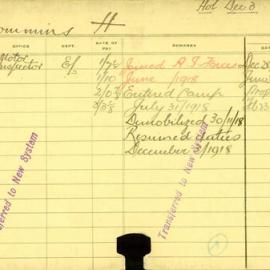 Hol Dec 3
ommins H
OFFICE DEPT. DATE OF PAY REMARKS
Motor
nspector E/ 1/7½ Joined A I Forces Dec 28
1/10 June /1918 June
2/0½ Entered Camp
2/3½ July 31/1918
Demobilized 30/11/18
Resumed duties
December 3/1918
ferred to New System
Transferred to New System